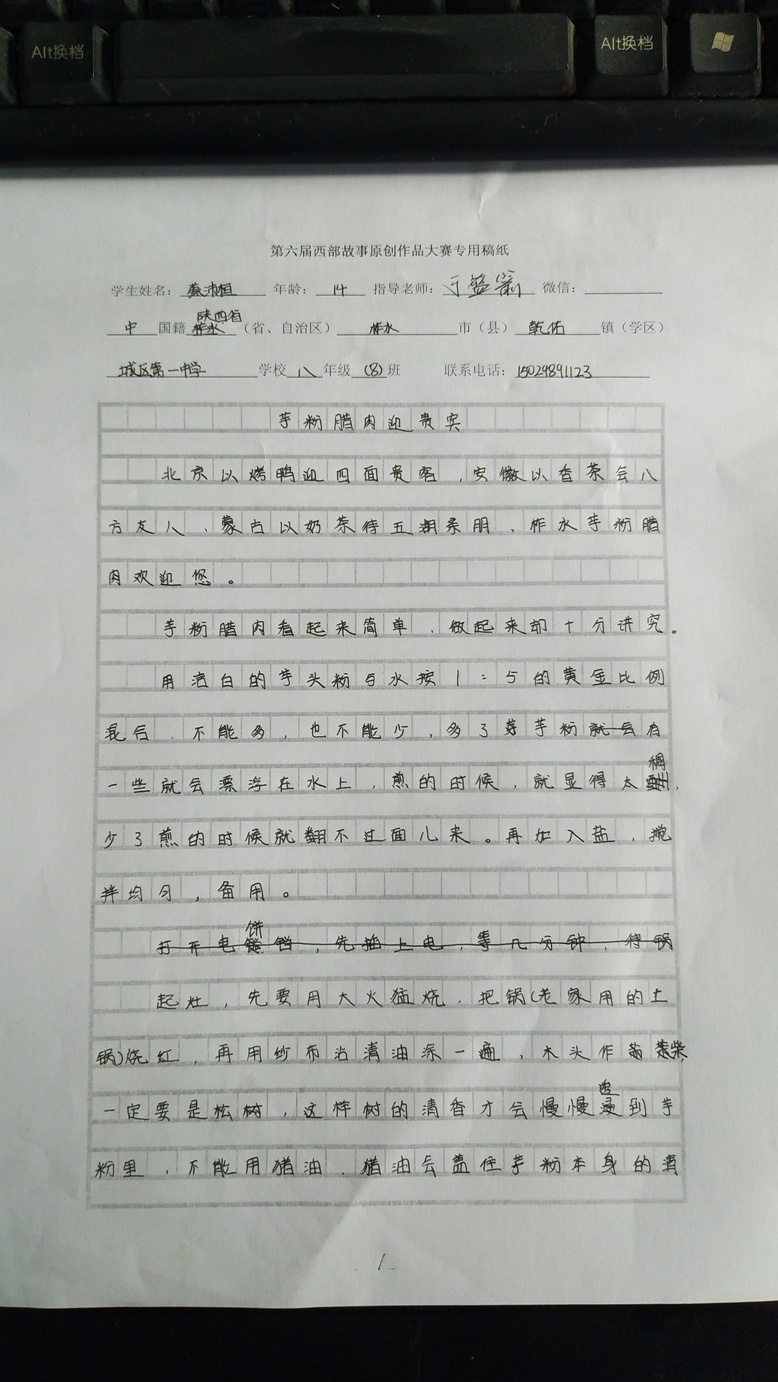 Alt换档
Alt换档
第六届西部故事原创作品大赛专用稿纸
学生姓名： 年龄：14 指导老师： 微信：
中国籍 陕西省 柞水（省、自治区） 柞水 市（县） 乾佑 镇（学区）
城区第一中学 学校 八 年级 （8）班 联系电话：15029891123
芋粉腊肉迎贵宾
北京以烤鸭迎四面贵客，安徽以香茶会八
方友人，蒙古以奶茶待五湖亲朋，柞水芋粉腊
肉欢迎您。
芋粉腊肉看起来简单，做起来却十分讲究。
用洁白的芋头粉与水按1：5的黄金比例
混合，不能多，也不能少，多了芋粉就会有
一些就会漂浮在水上，煎的时候，就显得太稠，
少了煎的时候就翻不过面儿来。再加入盐，搅
拌均匀，备用。
打开电饼铛，先插上电，等几分钟，待锅
起灶，先要用大火猛烧，把锅（老家用的土
锅）烧红，再用纱布沾清油涂一遍，木头作柴
一定要是松树，这样树的清香才会慢慢透到芋
粉里，不能用猪油，猪油会盖住芋粉本身的清
1